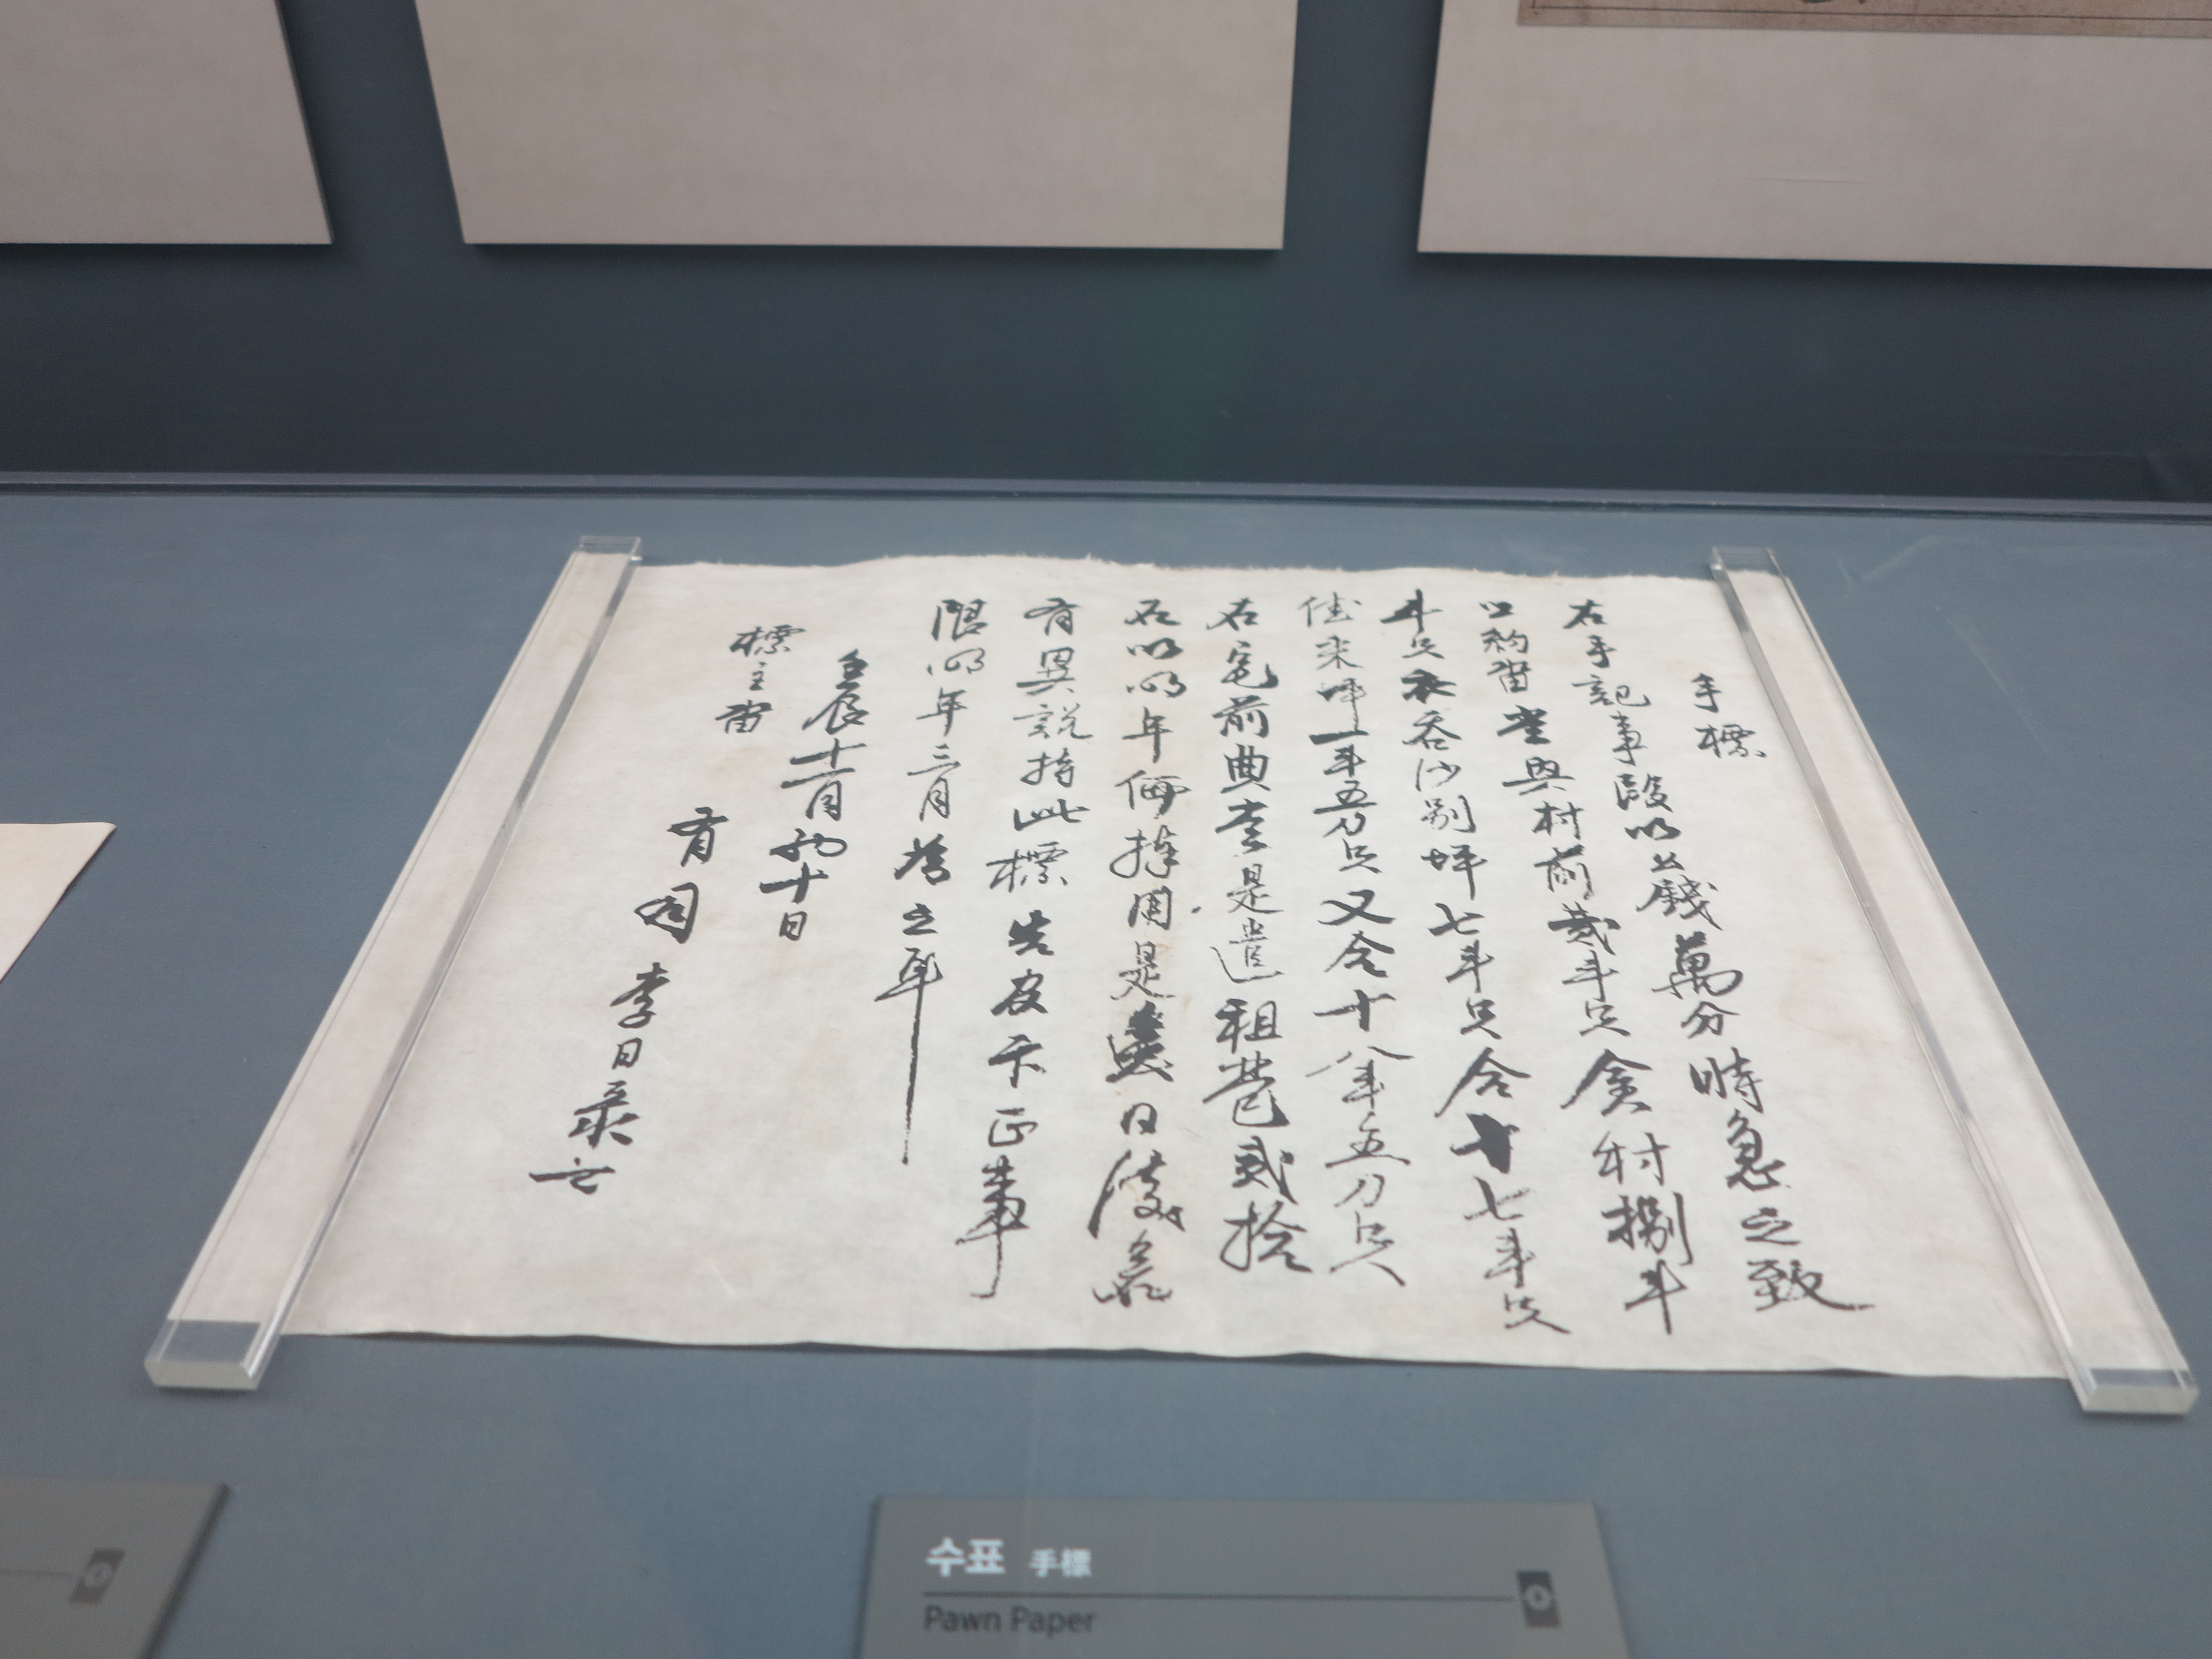 手標
右手記事段以公錢萬分時急之致
口約畓 與村前貳斗只 村捌斗
斗只 吞沙別坪七斗只合十七斗只
坪一斗五刀只又合十八斗五刀只
右宅前曲 是遣租 貳拾
石以明年 用是 日後
有異說持此標告 卞正事
限以明年三月
壬辰十一月初十日
標主畓
有司 李日
수표 手標
Pawn Paper